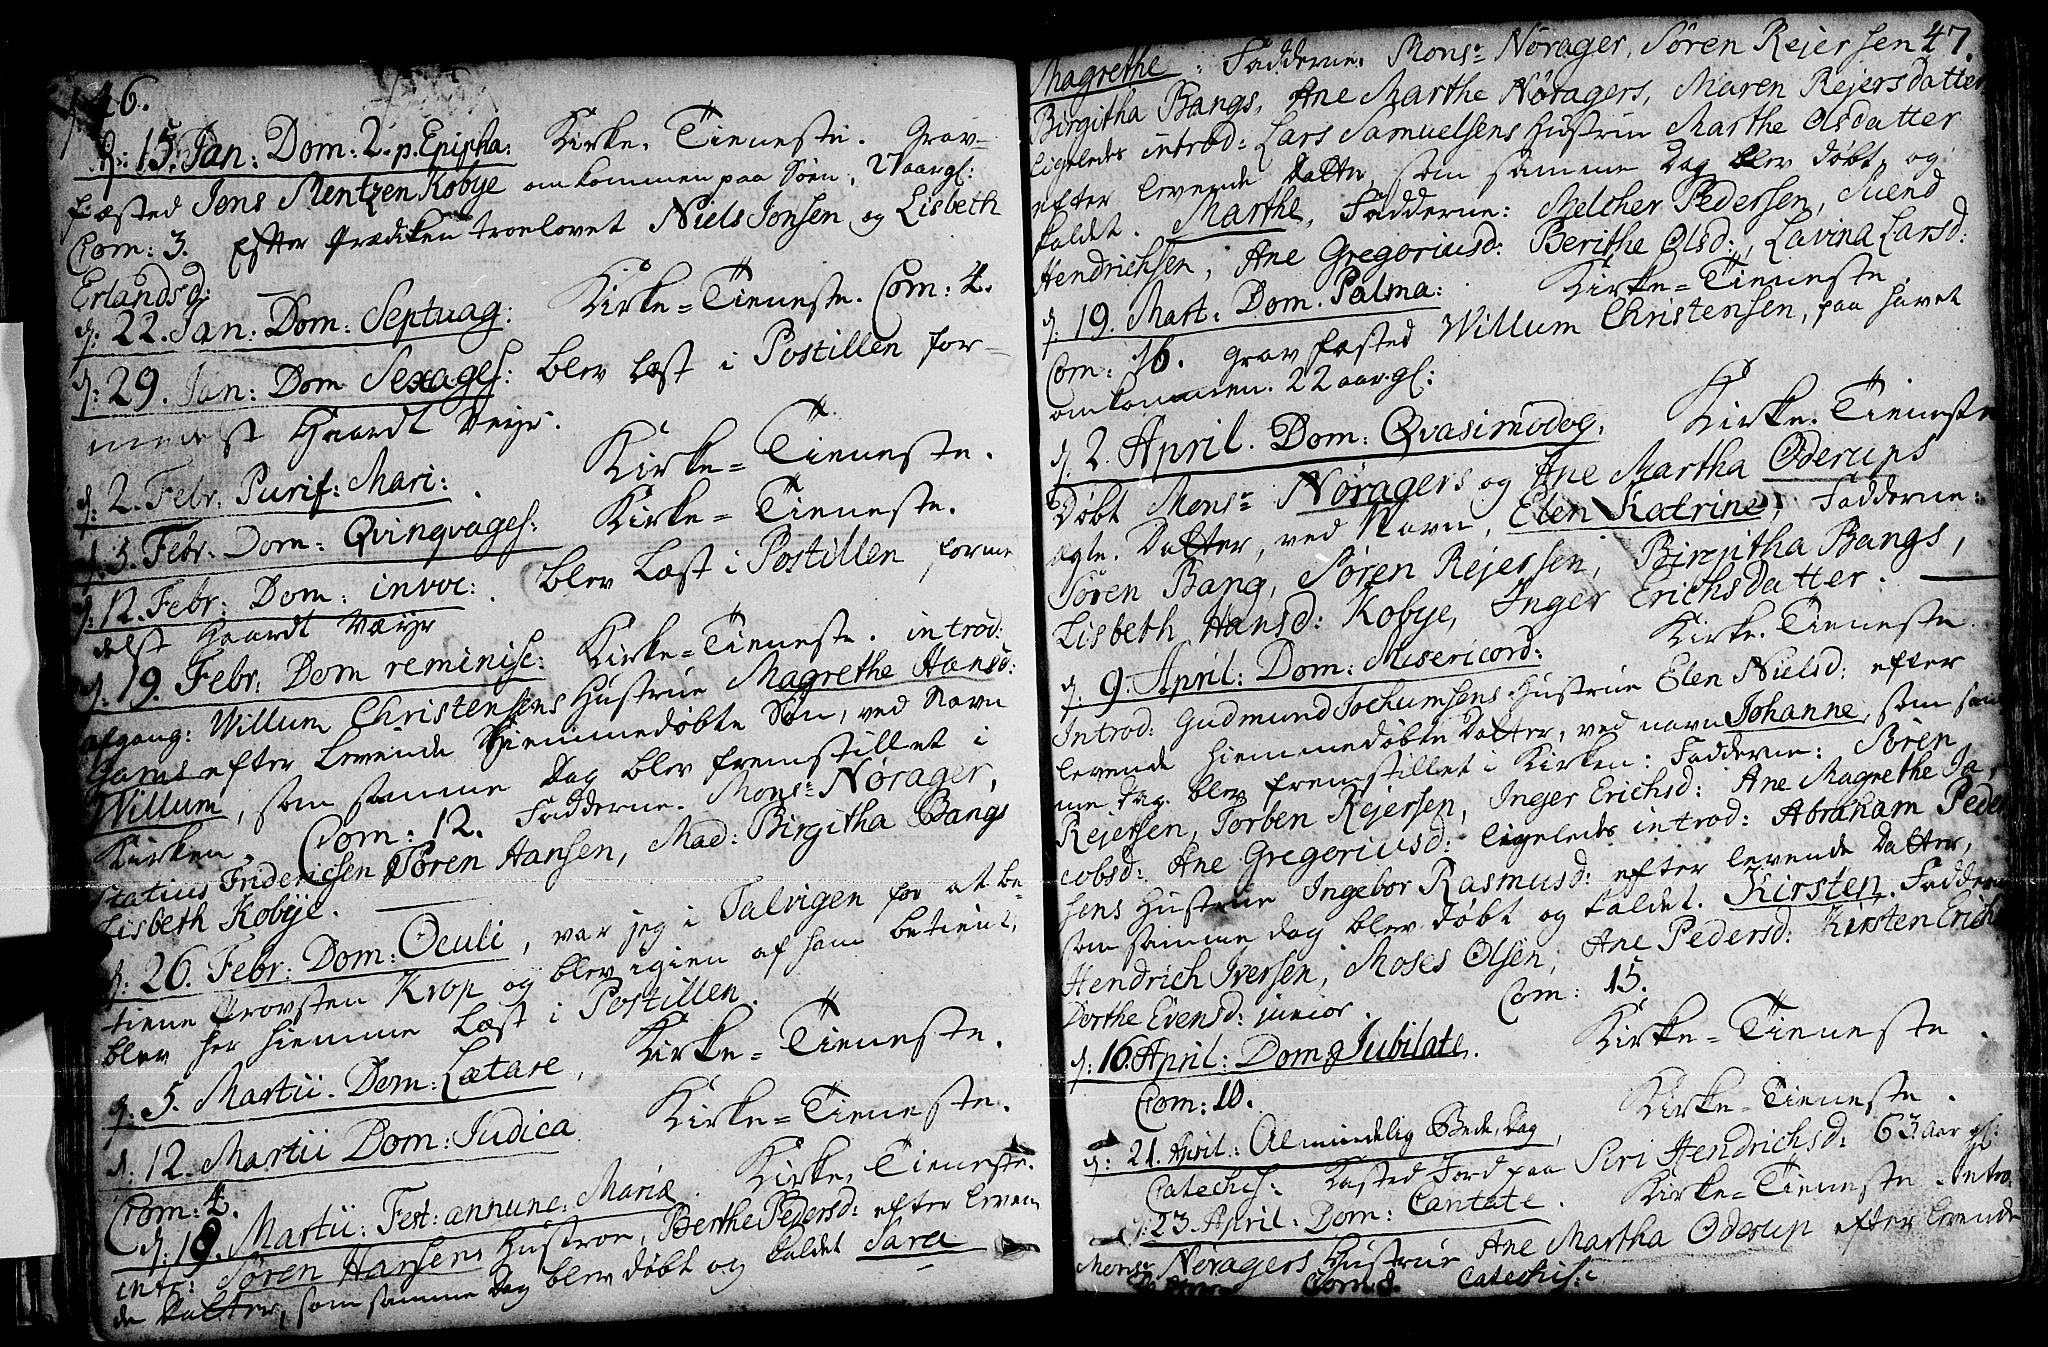 46.
d: 15. Jan: Dom: 2. p. Epipha: Kirke-Tieneste. Grav-
fæsted Jens Mentzen Kobye omkommen paa Søen, 27 aar gl:
Com: 3. Efter Prædiken troelovet Niels Jonsen og Lisbeth
Erlandsd:
d: 22. Jan. Dom: Septuag: Kirke=Tieneste. Com: 4.
d: 29. Jan: Dom Sexages: blev læst i Postillen for-
medelst Haardt Veyr.
d: 2. Febr: Purif: Mari: Kirke=Tieneste.
d. 5. Febr: Dom: Qvinqvages: Kirke=Tieneste.
d: 12. Febr: Dom: invoc: blev Læst i Postillen forme
delst Haardt Væyr
d: 19. Febr: Dom reminisc: Kirke=Tieneste. introd:
afgang: Willum Christensens Hustrue Magrethe Hansd:
Gams efter Levende Hiemmedøbte Søn, ved Navn
Willum, som samme Dag blev fremstillet i
Kirken. Com: 12. Fadderne. Mons:r Nørager,
Statius Friderichsen Søren Hansen, Mad: Birgitha Bangs
Lisbeth Kobye.
d: 26. Febr: Dom: Oculi, var jeg i Talvigen for at be-
tiene Provsten Krop og blev igien af ham betient,
blev her hiemme Læst i Postillen.
d: 5. Martii. Dom: Lætare, Kirke=Tieneste.
d. 12. Martii Dom: Judica Kirke=Tieneste.
Com: 4.
d: 19. Martii: Fest: annunc: Mariæ. Kirke-Tieneste.
intr: Søren Hansens Hustroe, Berthe Pedersd: efter leven
de Datter, som samme Dag blev døbt og kaldet Sara
47
Magrethe: Fadderne. Mons:r Nørager, Søren Rejersen
Birgitha Bangs, Ane Marthe Nøragers, Maren Rejersdatter
Ligeledes introd: Lars Samuelsens Hustrue Marthe Olsdatter
efter levende Datter, som samme Dag blev døbt, og
kaldet. Marthe, Fadderne: Melcher Pedersen, Suend
Hendrichsen, Ane Gregoriusd: Berithe Olsd:, Lavina Larsd:
d. 19. Mart: Dom. Palma: Kirke=Tieneste.
Com: 16. Gravfæsted Willum Christensen, paa havet
omkommen. 22 aar gl:
d. 2. April. Dom: Qvasimodog. Kirke-Tieneste
Døbt Mons:r Nøragers og Ane Martha Oderups
ægte. Datter, ved Navn, Elen Katrine, Fadderne:
Søren Bang, Søren Rejersen, Birgitha Bangs,
Lisbeth Hansd: Kobye, Inger Erichsdatter.
d. 9. April: Dom: Misericord: Kirke-Tieneste.
Introd: Gudmund Jochumsens Hustrue Elen Nielsd: efter
levende hiemmedøbte Datter, ved navn Johanne, som sam
me dag blev fremstillet i Kirken: Fadderne: Søren
Rejersen, Torben Rejersen, Inger Erichsd: Ane Magrethe Ja,
cobsd: Ane Gregoriusd: ligeledes introd: Abraham Peder
sens Hustrue Ingebor Rasmusd: efter levende Datter,
som samme dag blev døbt og kaldet. Kirsten. Fadderne
Hendrich Iversen, Moses Olsen, Ane Pedersd: Kirsten Erich
Dorthe Evensd: junior. Com: 15.
d: 16. April: Dom Jubilate. Kirke=Tieneste.
Com: 10.
d: 21. April: Almindelig Bede,dag, Kirke-Tieneste.
Catechis: Kasted Jord paa Siri Hendrichsd: 63 aar gl:
d: 23. April: Dom: Cantate. Kirke-Tieneste. Intro
Mons:r Nøragers Hustrue Ane Martha Oderup efter levende
Datter. Com: 8. Catechis: